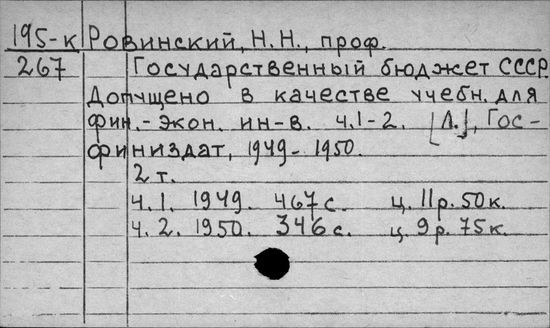 195-к Ровинский, Н.Н., проф.
267 Государственный бюджет СССР.
Допущено в качестве учебн. для
фин.-экон. ин-в. ч.1-2. [Л.], Гос-
финиздат, 1949-1950.
2 т.
ч.1. 1949. 467 с. ц. 11р. 50к.
ч.2. 1950. 346 с. ц. 9р. 75к.